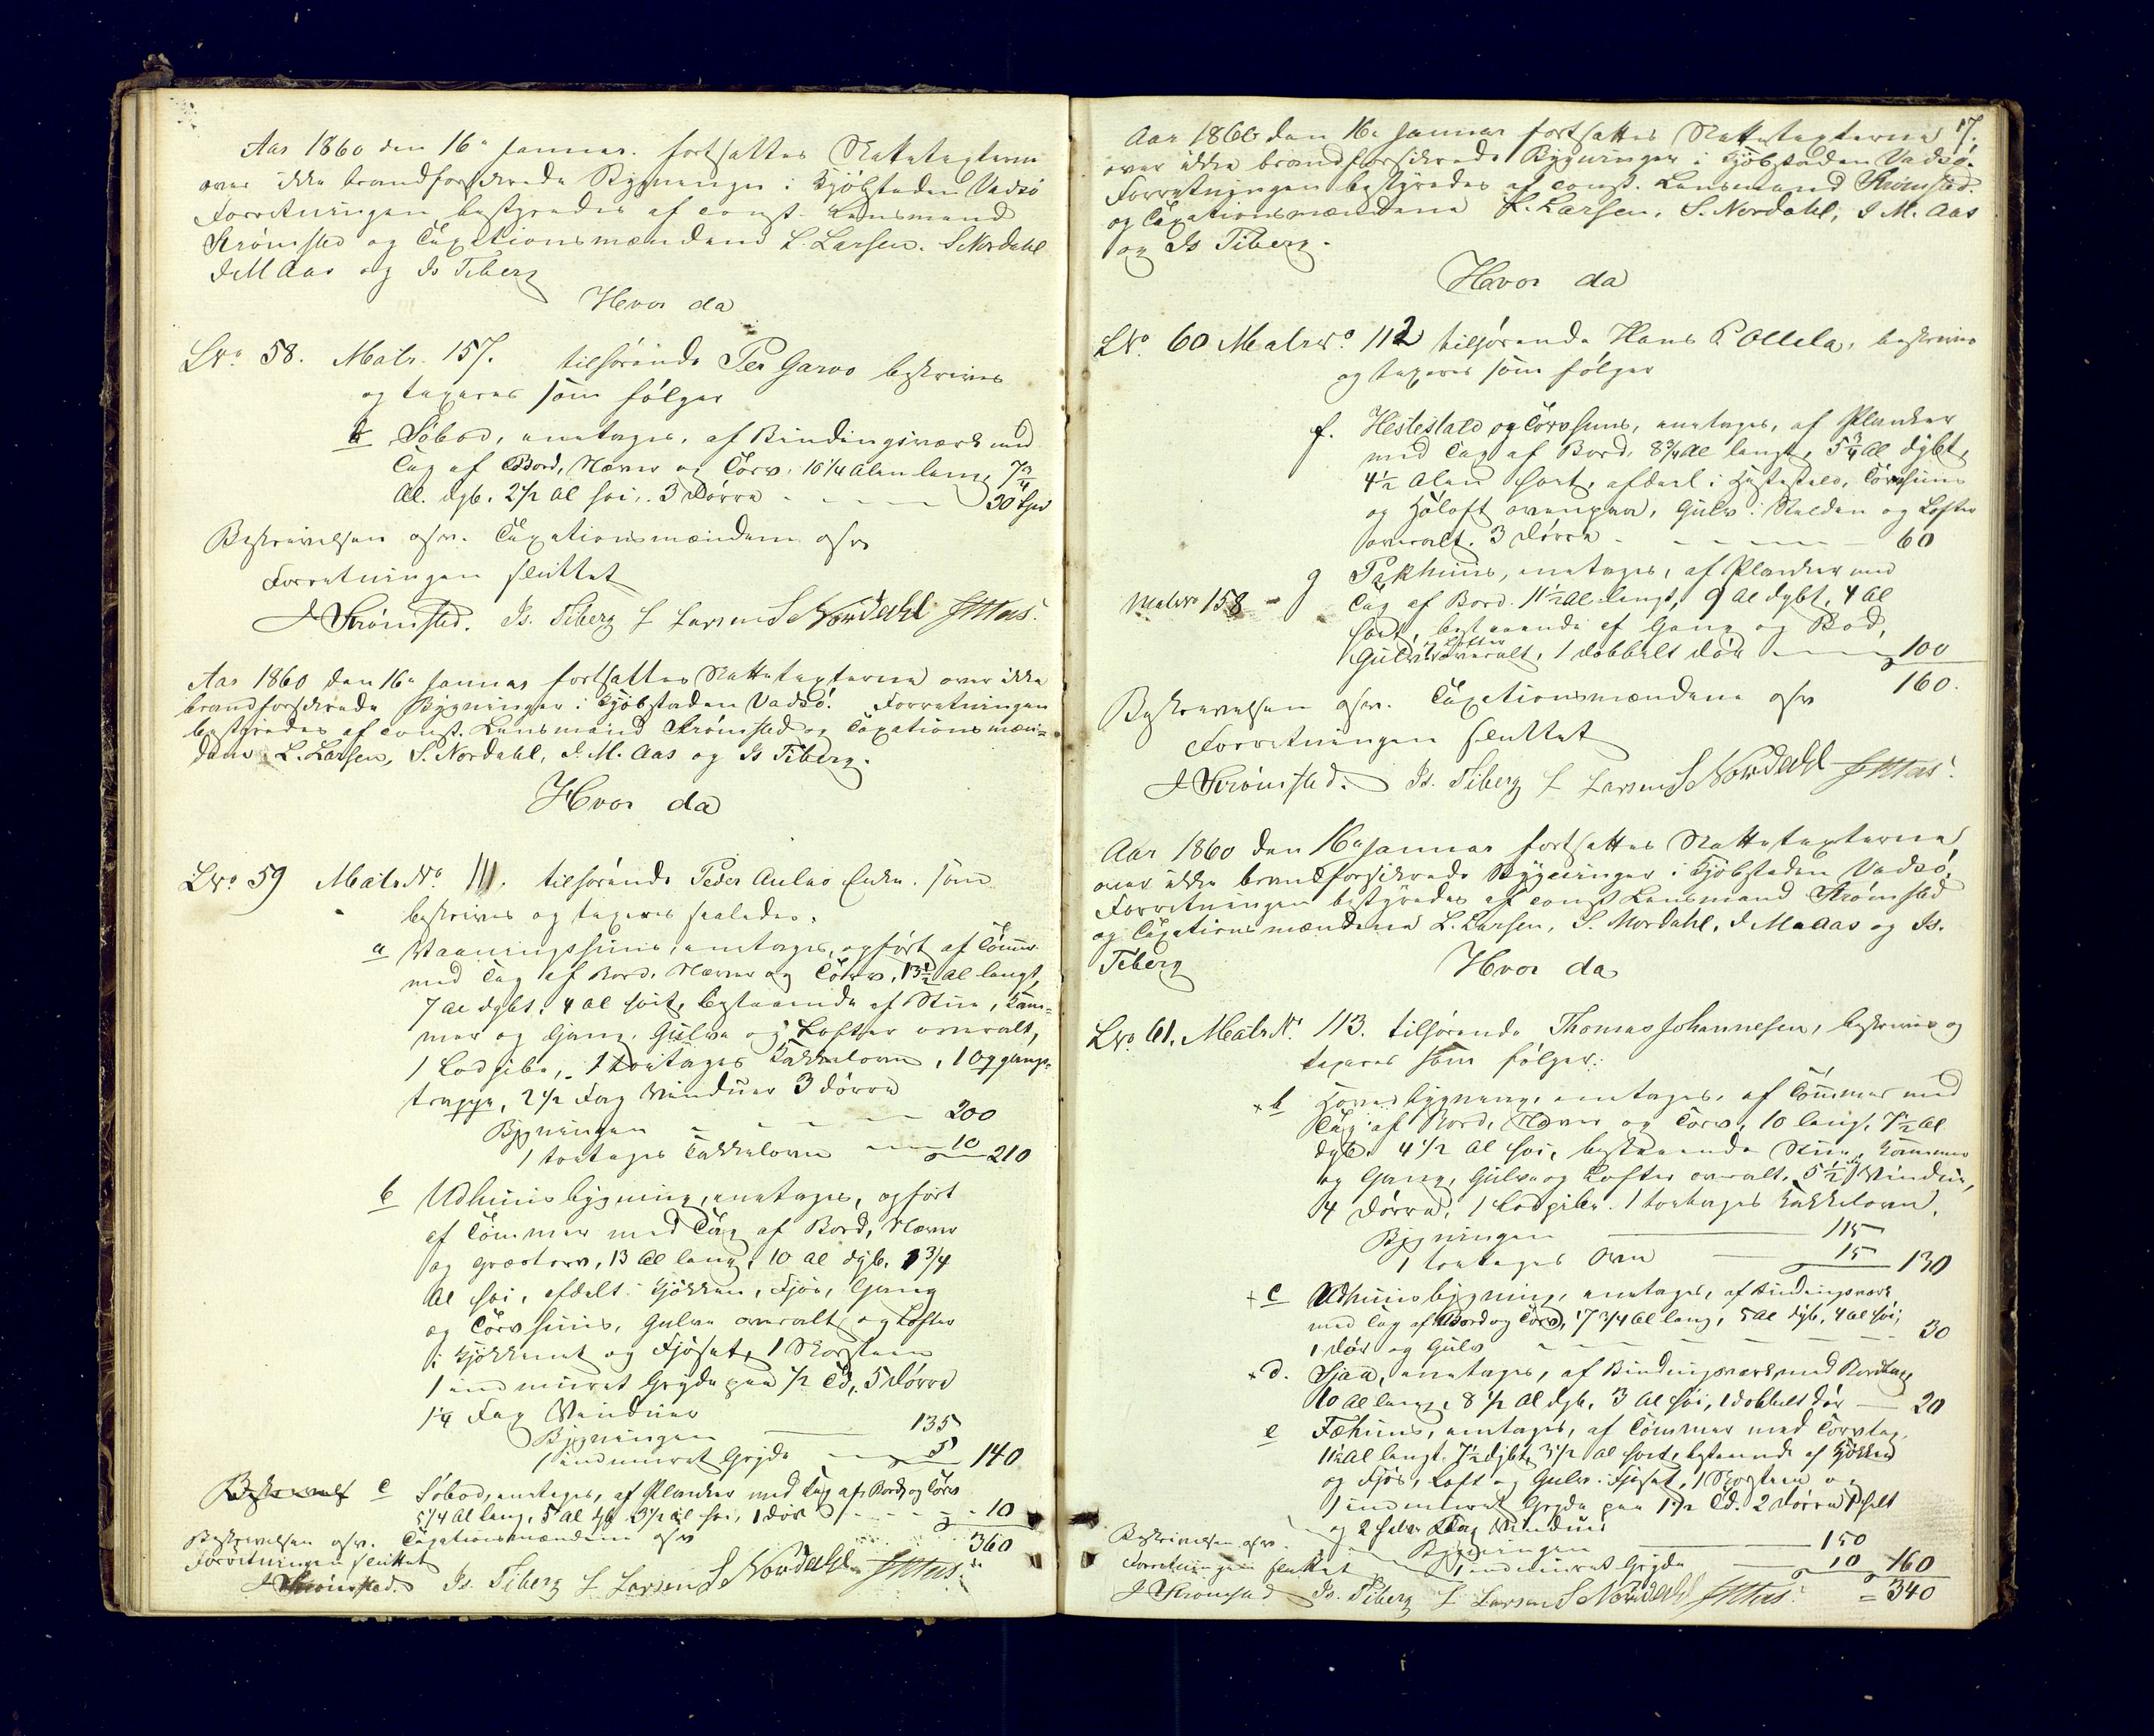 Aar 1860 den 16e Januar fortsattes Skattetaxterne
over ikke brandforsikrede Bygninger i Kjøbstaden Vadsø
Forretningen bestyredes af const. Lensmand
Strømsted og Taxationsmændene L. Larsen. S Nordahl
J M Aas og Is Tiberg
Hvor da
Lno 58. Matr. 157. tilhørende Per Garvo beskrives
og taxeres som følger
b Søbod, eenetages, af Bindingsværk med
Tag af Bord, Næver og Torv. 10 1/4 Alen lang, 7 3/4
Al. dyb. 2 1/2 Al høi. 3 Dørre - - - 30 Spd
Beskrivelsen osv. Taxationsmændene osv
Forretningen sluttet
J Strømsted. Is. Tiberg L Larsen S Nordahl JMAas.
Aar 1860 den 16e Januar fortsattes Skattetaxterne over ikke
brandforsikrede Bygninger i Kjøbstaden Vadsø. Forretningen
bestyredes af const. Lensmand Strømsted og Taxationsmæn-
dene L. Larsen, S. Nordahl, J. M. Aas og Is Tiberg.
Hvor da
Lno 59 Matr No. 111. tilhørende Peder Aulas Enke. som
beskrives og taxeres saaledes.
a Vaaningshuus, eenetages, opført af Tømmer
med Tag af Bord, Næver og Torv, 13 1/2 Al langt,
7 Al dybt. 4 Al høit, bestaaende af Stue, Kam-
mer og Gang, Gulve og Lofter overalt,
1 Lodpibe, 1 toetages Kakkelovn, 1 Opgangs-
trappe, 2 1/2 Fag Vinduer 3 Dørre
Bygningen - - - - 200
1 toetages Kakkelovn - 10 210
b Udhuusbygning, eenetages, opført
af Tømmer med Tag af Bord, Næver
og Græstorv, 13 Al lang, 10 Al dyb, 3 3/4
Al høi, afdelt i Kjøkken, Fjøs, Gang
og Torvhuus, Gulve overalt og Lofter
i Kjøkkenet og Fjøset, 1 Skorsteen
1 indmuret Gryde paa 1/2 Td, 5 Dørre
1 1/4 Fag Vinduer
Bygningen 135
1 indmuret Gryde 5 140
c Søbod, eenetages, af Planker med Tag af Bord og Torv
5 1/4 Al lang, 5 Al dyb 3 1/2 Al høi, 1 Dør - - - - 10
Beskrivelsen osv. Taxationsmændene osv 360
Forretningen sluttet
J Strømsted. Is. Tiberg L Larsen S Nordahl JMAas.
17.
Aar 1860 den 16e Januar fortsattes Skattetaxterne
over ikke brandforsikrede Bygninger i Kjøbstaden Vadsø.
Forretningen bestyredes af const. Lensmand Strømsted.
og Taxationsmændene L. Larsen, S. Nordahl, J M. Aas
og Is Tiberg.
Hvor da
Lno. 60 Matr No. 112 tilhørende Hans P Ollila, beskrives
og taxeres som følger
f. Hestestald og Torvhuus, eenetages, af Planker
med Tag af Bord, 8 3/4 Al langt, 5 3/4 Al dybt,
4 1/2 Alen høit, afdeelt i Hestestald, Torvhuus
og Høloft ovenpaa, Gulv i Stalden og Lofter
overalt. 3 Dørre - - - - - 60
Matr No 158 - g Pakhuus, eenetages, af Planker med
Tag af Bord. 11 1/2 Al langt, 9 Al dybt, 4 Al
høit, bestaaende af Gang og Bod,
Gulv & Lofter overalt, 1 dobbelt Dør - - 100
160.
Beskrivelsen osv. Taxationsmændene osv
Forretningen sluttet
J Strømsted. Is. Tiberg L Larsen S Nordahl JMAas.
Aar 1860 den 16e Januar fortsattes Skattetaxterne
over ikke brandforsikrede Bygninger i Kjøbstaden Vadsø.
Forretningen bestyredes af const Lensmand Strømsted
og Taxationsmændene L. Larsen, S. Nordahl, J M Aas og Is.
Tiberg
Hvor da
Lno. 61. Matr No. 113. tilhørende Thomas Johannesen, beskrives og
taxeres som følger:
x b Hovedbygning, eenetages, af Tømmer med
Tag af Bord, Næver og Torv, 10 lang, 7 1/2 Al
dyb. 4 1/2 Al høi, bestaaende Stue, Kammer
og Gang, Gulve og Lofter overalt, 5 1/2 Vindue,
4 Dørre, 1 Lodpibe. 1 toetages Kakkelovn.
Bygningen 115
1 toetages Ovn 15 130
x c Udhuusbygning, eenetages, af Bindingsværk
med Tag af Bord og Torv, 17 3/4 Al lang, 5 Al dyb, 4 Al høi,
1 Dør og Gulv - - - 30
x d. Sjaa, eenetages, af Bindingsværk med Bordtag
10 Al lang, 8 1/2 Al dyb. 3 Al høi, 1 dobbelt Dør - 20
e Fæhuus, eenetages, af Tømmer med Torvtag,
11 1/2 Al langt. 7 1/2 dybt, 3 1/2 Al høit, bestaaende af Kjøkken
og Fjøs, Loft og Gulv i Fjøset, 1 Skorsteen og
1 indmuret Gryde paa 1 1/2 Td. 2 Dørre 1 heelt
og 2 halve Fag Vinduer
Beskrivelsen osv. Bygningen 150
Forretningen sluttet 1 indmuret Gryde 10 160
J Strømsted Is. Tiberg L Larsen S Nordahl JMAas. = 340